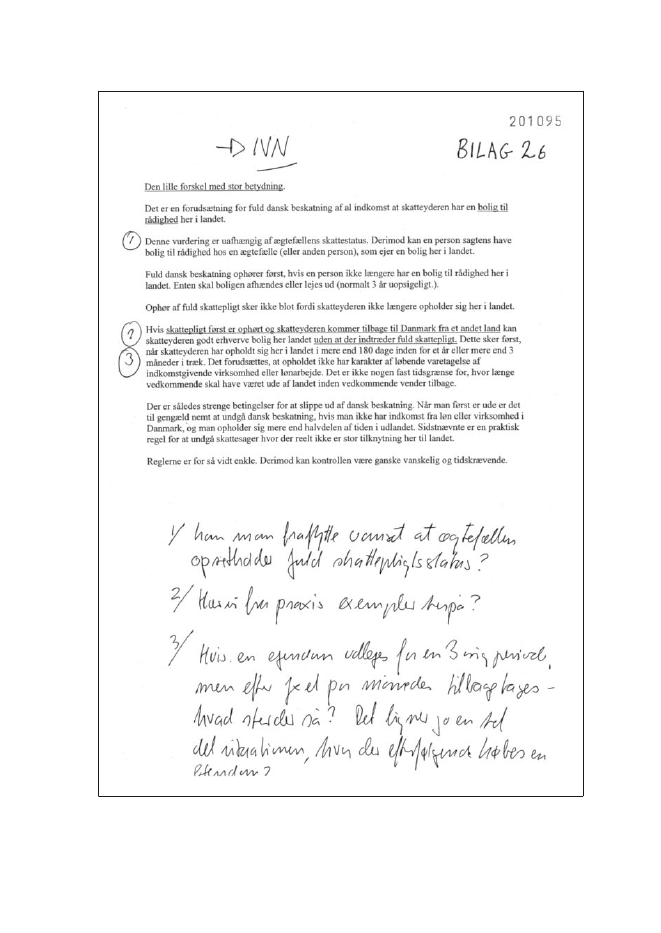 201095
→ IVN
BILAG 26
Den lille forskel med stor betydning.
Det er en forudsætning for fuld dansk beskatning af al indkomst at skatteyderen har en bolig til
rådighed her i landet.
1
Denne vurdering er uafhængig af ægtefællens skattestatus. Derimod kan en person sagtens have
bolig til rådighed hos en ægtefælle (eller anden person), som ejer en bolig her i landet.
Fuld dansk beskatning ophører først, hvis en person ikke længere har en bolig til rådighed her i
landet. Enten skal boligen afhændes eller lejes ud (normalt 3 år uopsigeligt.).
Ophør af fuld skattepligt sker ikke blot fordi skatteyderen ikke længere opholder sig her i landet.
2
3
Hvis skattepligt først er ophørt og skatteyderen kommer tilbage til Danmark fra et andet land kan
skatteyderen godt erhverve bolig her landet uden at der indtræder fuld skattepligt. Dette sker først,
når skatteyderen har opholdt sig her i landet i mere end 180 dage inden for et år eller mere end 3
måneder i træk. Det forudsættes, at opholdet ikke har karakter af løbende varetagelse af
indkomstgivende virksomhed eller lønarbejde. Det er ikke nogen fast tidsgrænse for, hvor længe
vedkommende skal have været ude af landet inden vedkommende vender tilbage.
Der er således strenge betingelser for at slippe ud af dansk beskatning. Når man først er ude er det
til gengæld nemt at undgå dansk beskatning, hvis man ikke har indkomst fra løn eller virksomhed i
Danmark, og man opholder sig mere end halvdelen af tiden i udlandet. Sidstnævnte er en praktisk
regel for at undgå skattesager hvor der reelt ikke er stor tilknytning her til landet.
Reglerne er for så vidt enkle. Derimod kan kontrollen være ganske vanskelig og tidskrævende.
1/ kan man fraflytte uanset at ægtefællen
opretholder fuld skattepligtsstatus?
2/ Har vi fra praxis exempler herpå?
3/ Hvis en ejendom udlejes for en 3 årig periode,
men efter et par måneder tilbagetages –
hvad sker der så? Det ligner jo en del
situationen, hvor der efterfølgende købes en
ejendom?